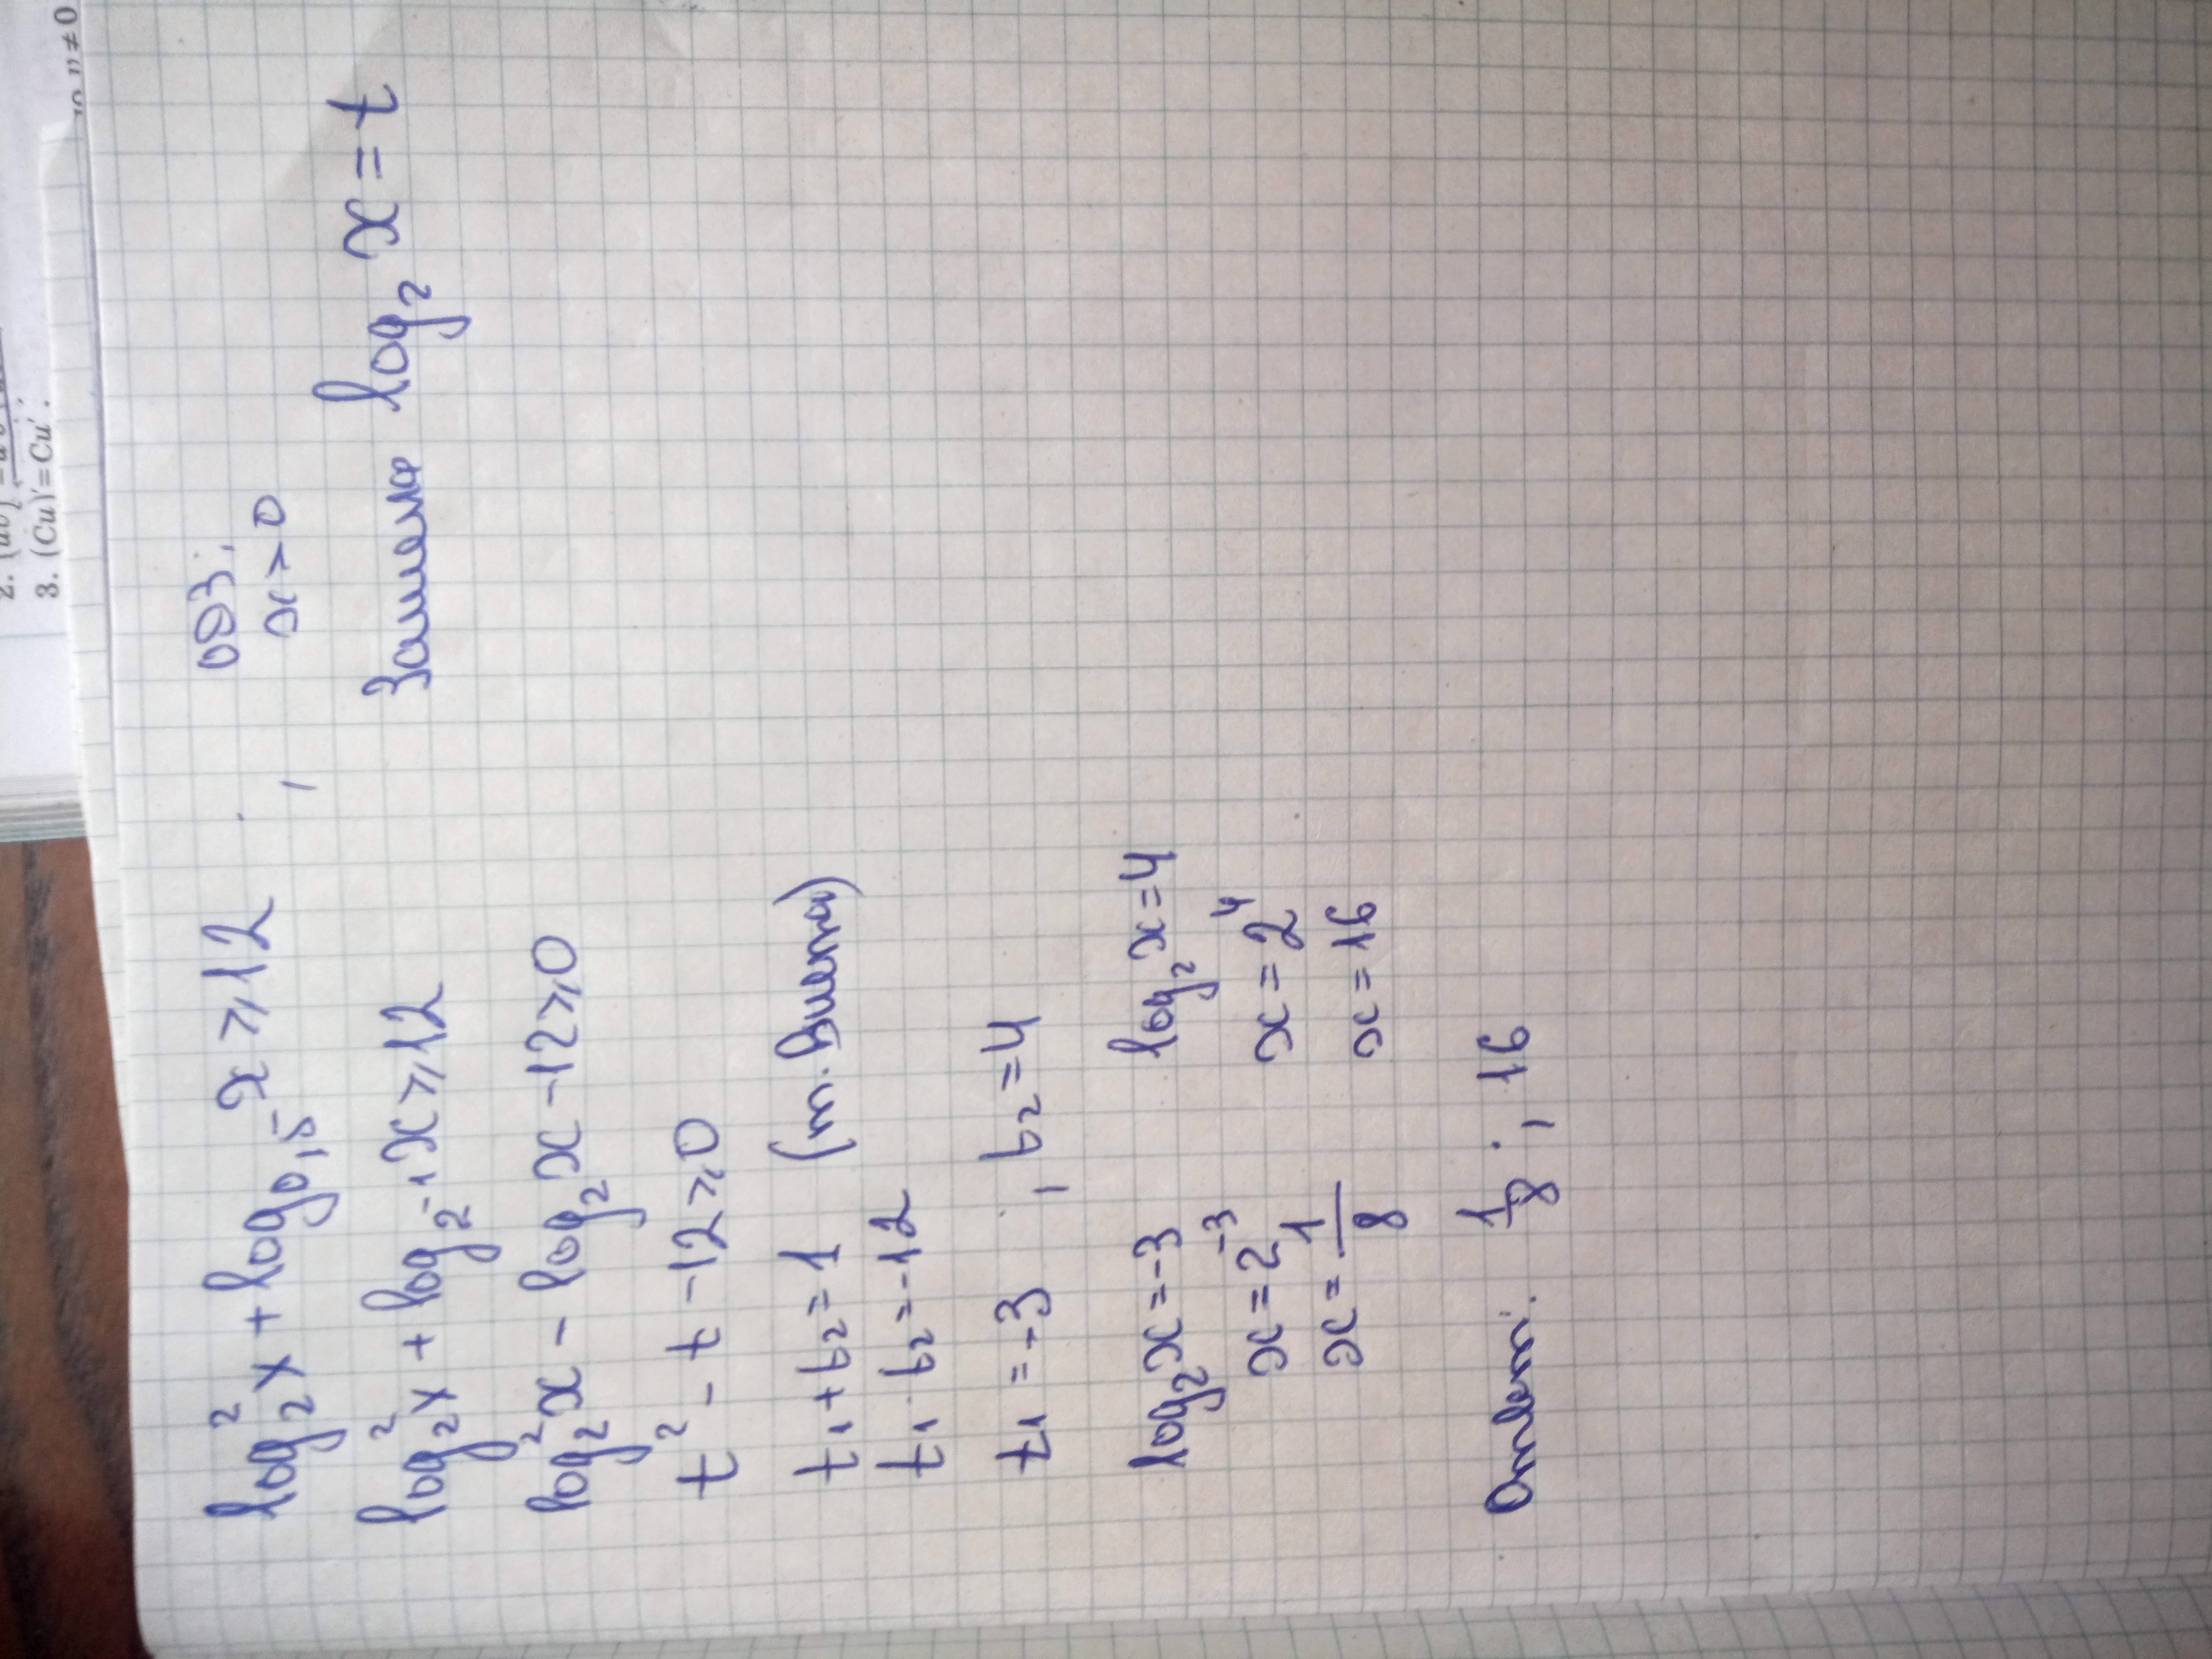 3. (Cu)′=Cu′.
log₂²x + log₀,₅ x ⩾ 12
ОДЗ:
x > 0
log₂²x + log₂₋₁ x ⩾ 12
Замена log₂ x = t
log₂²x − log₂ x − 12 ⩾ 0
t² − t − 12 ⩾ 0
t₁ + t₂ = 1 (т. Виета)
t₁ · t₂ = −12
t₁ = −3 ; t₂ = 4
log₂ x = −3 log₂ x = 4
x = 2⁻³ x = 2⁴
x = 1/8 x = 16
Ответ: 1/8 ; 16